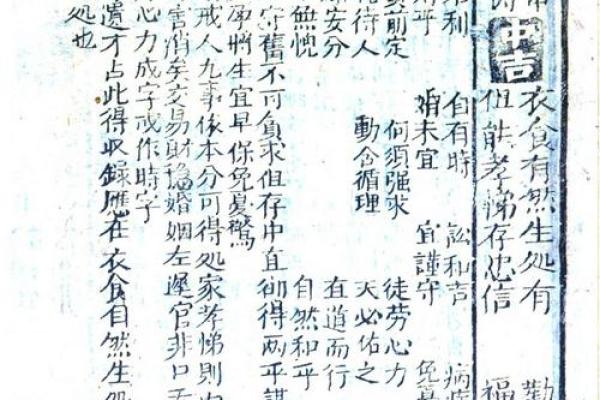 衣食有然生処有 勸
中吉 但能孝悌存忠信 福
利 自有時 訟和吉 病
乎 婚未宜 宜謹守 免
前定 何須强求 徒劳心力
待人 動合循理 天必佑之
安分 直道而行
無忧 自然和平
守舊不可負求但存中直卻得兩平謀
將生宜早保免憂驚
戒人九事依本分可得処家孝悌則
害消矣交易財穩婚姻左遲官非口舌
心力成字戒作時字
遺才占此得収録應在衣食自然生処
処也